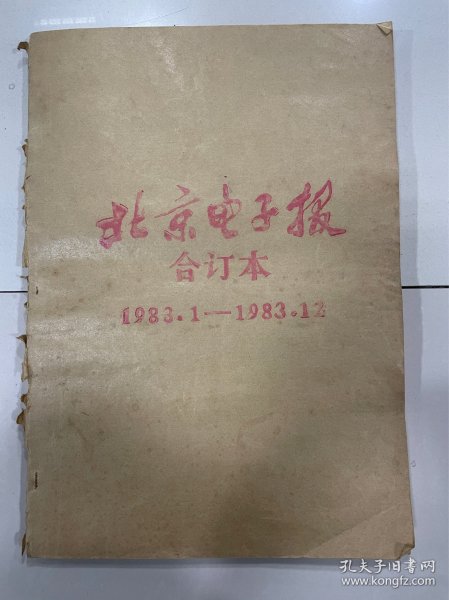 北京电子报
合订本
1983.1—1983.12
孔夫子旧书网
www.kongfz.com